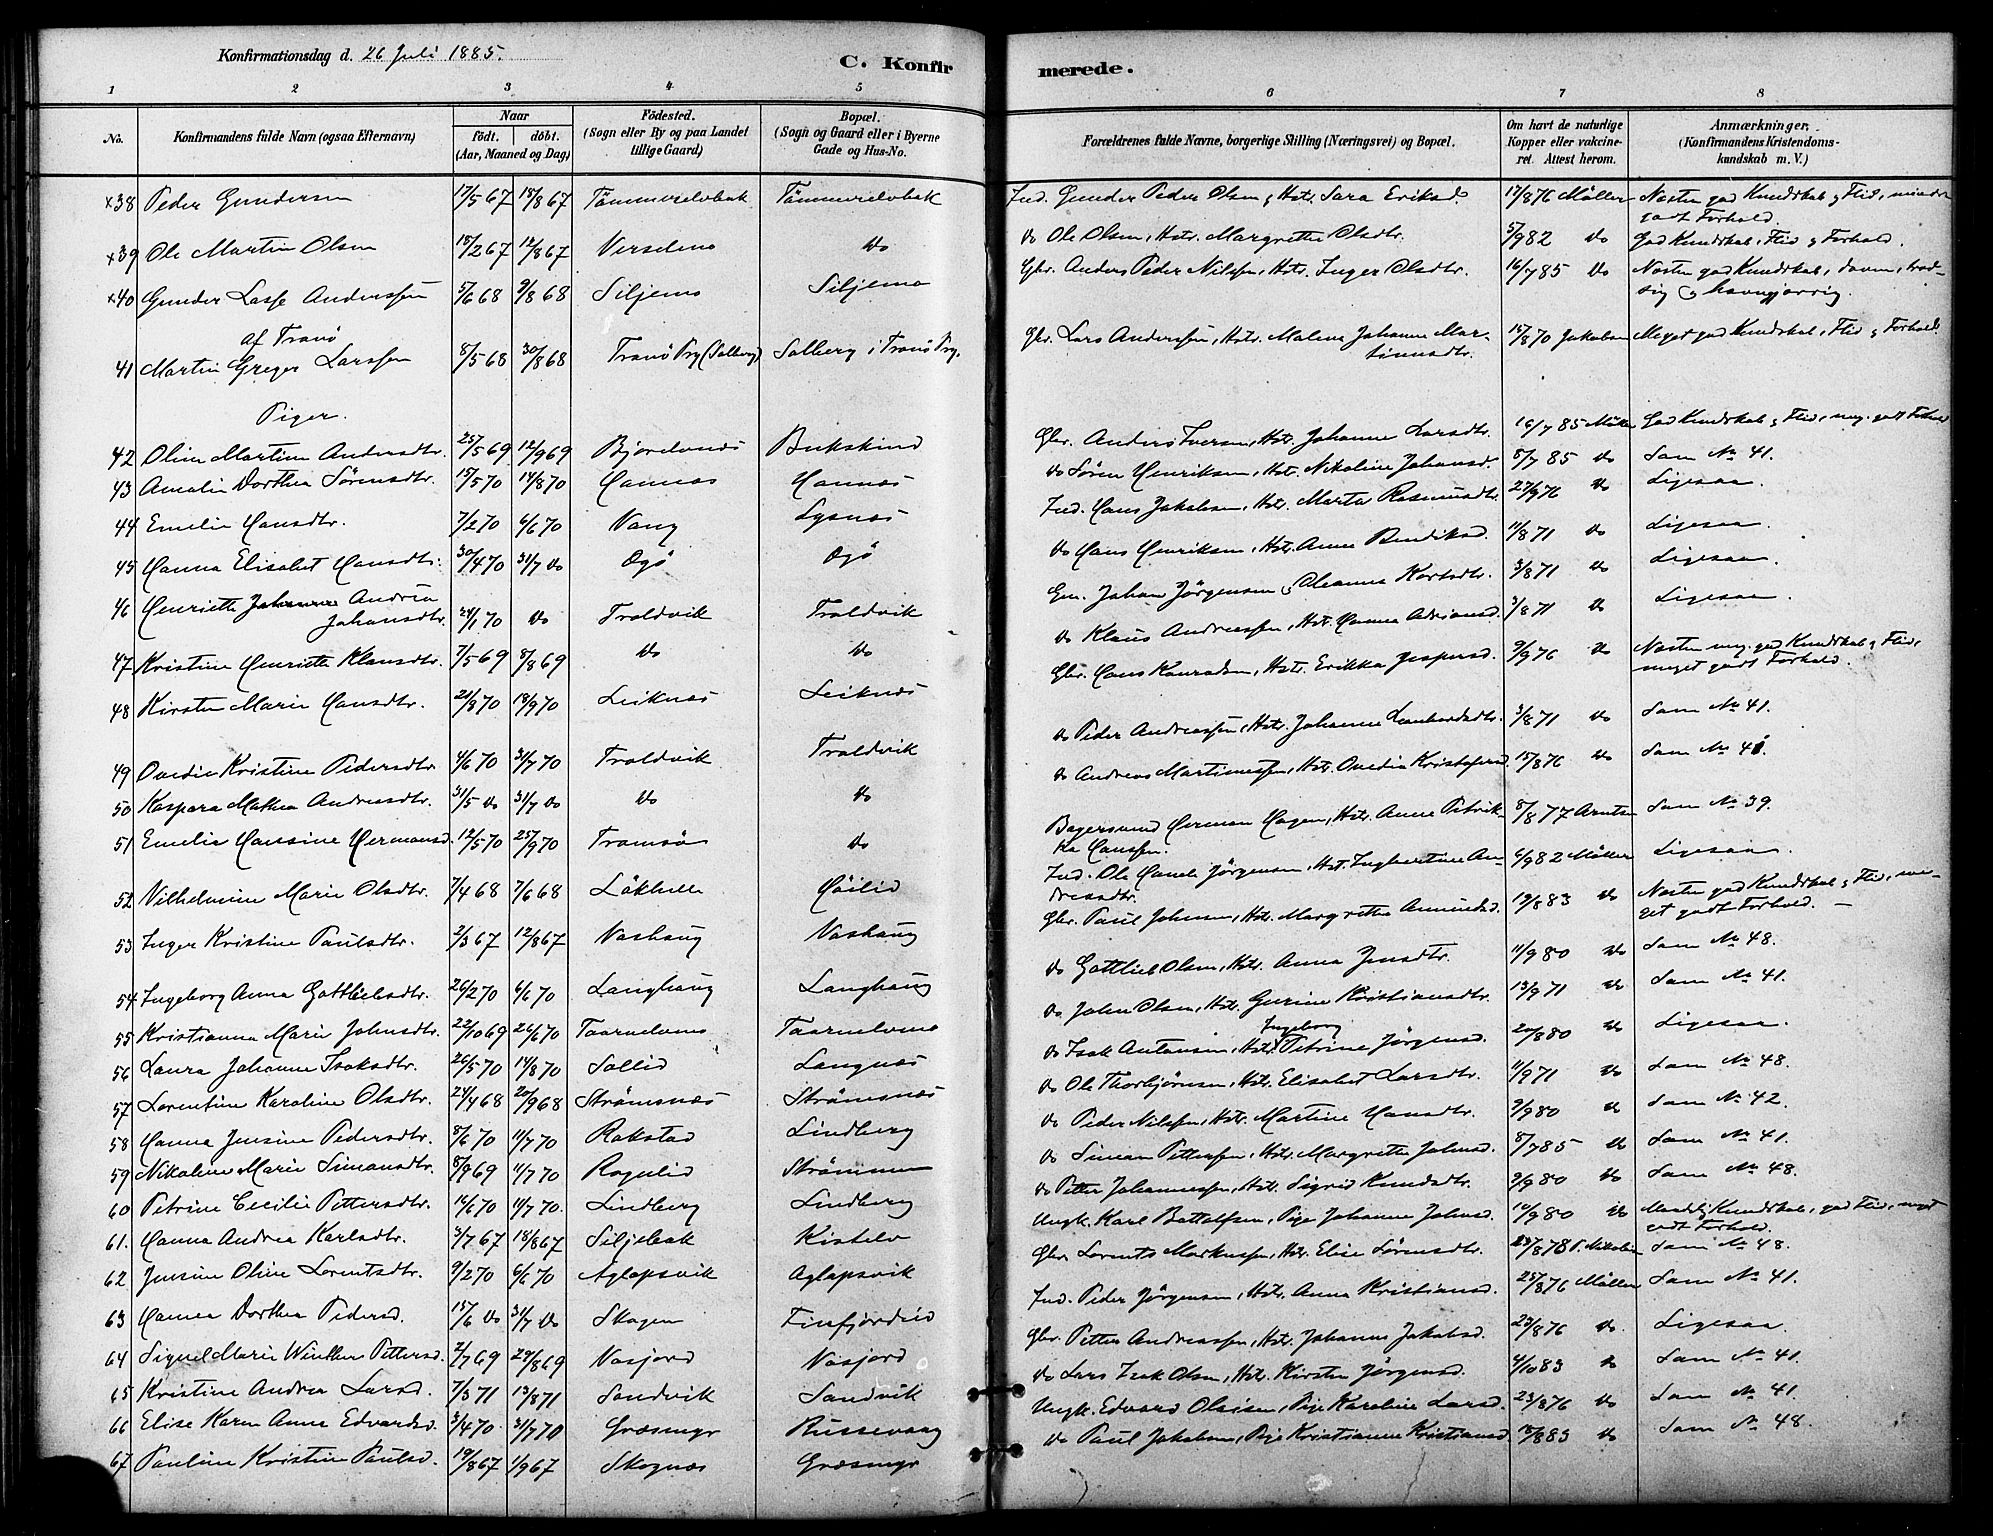 Konfirmationsdag d. 26 Juli 1885.
C. Konfirmerede.
1 2 3 4 5 6 7 8
No.
Konfirmandens fulde Navn (ogsaa Efternavn)
Naar
födt. döbt.
(Aar, Maaned og Dag)
Födested.
(Sogn eller By og paa Landet
tillige Gaard)
Bopæl.
(Sogn og Gaard eller i Byerne
Gade og Hus-No.
Forældrenes fulde Navne, borgerlige Stilling (Næringsvei) og Bopæl.
Om havt de naturlige
Kopper eller vakcine-
ret. Attest herom.
Anmærkninger,
(Konfirmandens Kristendoms-
kundskab m. V.)
x38 Peder Gundersen 17/5 67 18/8 67 Tömmerelvbak Tömmerelvbak Ind. Gunder Peder Olsen, Hstr. Sara Eriksd. 17/9 76 Möller Næsten god Kundskab, Flid, mindre
godt Forhold.
x39 Ole Martin Olsen 18/2 67 12/8 67 Verselmo do do Ole Olsen, Hstr. Margrethe Olsdtr. 5/9 82 do God Kundskab, Flid og Forhold.
x40 Gunder Lasse Anderssen 5/6 68 9/8 68 Siljemo Siljemo Gbr. Anders Peder Nilsen, Hstr. Inger Olsdtr. 16/7 85 do Næsten god Kundskab,
af Tranö
41 Martin Greger Larssen 8/5 68 30/8 68 Tranö Prg (Solberg) Solberg i Tranö Prg. Gbr. Lars Anderssen, Hstr. Malena Johanna Mar-
tinusdtr. 15/8 70 Jakobsen Meget god Kundskab, Flid og Forhold.
Piger.
42 Oline Martine Andersdtr. 25/5 69 12/9 69 Bjorelvnes Bukskind Gbr. Anders Iversen, Hstr. Johanna Larsdtr. 16/7 85 Möller God Kundskab, Flid, meg. godt Forhold
43 Amalie Dorthea Sörensdtr. 15/5 70 14/8 70 Hannæs Hannæs do Sören Henriksen, Hstr. Nikoline Johansd. 8/7 85 do Som No 41.
44 Emelie Hansdtr. 7/2 70 6/6 70 Vang Lysnæs Ind. Hans Jakobsen, Hstr. Marta Rasmusdtr. 27/9 76 do Ligesaa.
45 Hanna Elisabet Hansdtr. 30/4 70 31/7 do Ogö Ogö do Hans Henriksen, Hstr. Anna Bendiksd. 11/8 71 do Ligesaa.
46 Henriette Johanna Andrea
Johansdtr. 24/1 70 do Troldvik Troldvik Em. Johan Jörgensen, Oleanna Kortsdtr. 3/8 71 do Ligesaa.
47 Kristine Henriette Klausdtr. 7/5 69 8/8 69 do do do Klaus Andreassen, Hstr. Hanna Adriansd. 3/8 71 do Ligesaa.
48 Kirsten Marie Hansdtr. 21/8 70 18/9 70 Leiknæs Leiknæs Gbr. Hans Konradsen, Hstr. Erikka Jespersd. 9/9 76 do Næsten meg. god Kundskab, Flid,
meget godt Forhold.
49 Ovedie Kristine Pedersdtr. 4/6 70 31/7 70 Troldvik Troldvik do Peder Andreassen, Hstr. Johanna Leonhardsdtr. 3/8 71 do Som No 41.
50 Kaspara Mathea Andreasdtr. 31/5 do 31/7 do do do do Andreas Martinussen, Hstr. Ovedia Kristofersd. 15/8 76 do Som No 41.
51 Emelie Hansine Hermansd. 12/5 70 25/9 70 Tromsö do Bagersvend Herman Hagen, Hstr. Anne Petrik-
ka Hanssen. 8/8 77 Arntsen Som No 39.
52 Vilhelmine Marie Olsdtr. 7/4 68 7/6 68 Løkhelle Høilid Ind. Ole Jörgensen, Hstr. Ingbertine An-
dreasdtr. 6/9 82 Möller Ligesaa.
53 Inger Kristine Paulsdtr. 2/3 67 12/8 67 Vashaug Vashaug Gbr. Paul Johnsen, Hstr. Margrethe Amundsd. 19/8 83 do Næsten god Kundskab, Flid, me-
get godt Forhold. —
54 Ingeborg Anna Gottliebsdtr. 26/2 70 6/6 70 Langhaug Langhaug do Gottlieb Olsen, Hstr. Anna Jensdtr. 11/9 80 do Som No 48.
55 Kristianna Marie Johnsdtr. 22/10 69 26/6 70 Taarnelvmo Taarnelvmo do John Olsen, Hstr. Gurine Kristiansdtr. 13/9 71 do Som No 41.
56 Laura Johanna Isaksdtr. 26/5 70 14/8 70 Sollid Langnæs do Isak Antonsen, Hstr. Ingeborg Petrine Jörgensd. 20/8 80 do Ligesaa.
57 Lorentine Karoline Olsdtr. 24/4 68 20/9 68 Strömsnæs Strömsnæs do Ole Thorbjörnsen, Hstr. Elisabet Larsdtr. 11/9 71 do Som No 48.
58 Hanna Jensine Pedersdtr. 8/6 70 11/7 70 Rokstad Lindberg do Peder Nilssen, Hstr. Martine Hansdtr. 9/9 80 do Som No 42.
59 Nikoline Marie Simonsdtr. 8/9 69 11/7 70 Rognlid Strömmen do Simon Pettersen, Hstr. Margrethe Johnsd. 8/7 85 do Som No 41.
60 Petrine Cecilie Pettersdtr. 14/6 70 11/7 70. Lindberg Lindberg do Petter Johannessen, Hstr. Sigrid Knudsdtr. 9/9 80 do Som No 48.
61. Hanna Andrea Karlsdtr. 3/7 67 18/8 67 Siljebak Kistelv Ungk. Karl Bottolfsen, Pige Johanna Johnsd. 10/9 80 do Maadelig Kundskab, god Flid, meget
godt Forhold.
62 Jensine Oline Lorentsdtr. 9/2 70 6/6 70 Aglapsvik Aglapsvik Gbr Lorents Markussen, Hstr. Elise Sörensdtr. 23/8 78 Som No 48.
63 Hanna Dorthea Pedersd. 15/6 do 31/7 do Skogen Finfjordeid Ind. Peder Jörgensen, Hstr. Anna Kristiansd. 25/8 76 Möller Som No 41.
64 Signel Marie Winther Pettersd. 2/7 69 29/8 69 Vasjord Vasjord Gbr. Petter Andreassen, Hstr. Johanna Jakobsd. 23/8 76 do. Ligesaa.
65 Kristine Andrea Larsd. 7/3 71 13/8 71 Sandvik Sandvik do Lars Isak Olsen, Hstr. Kirsten Jörgensd. 4/10 83 do Som No 41.
66 Elise Karen Anna Edvardsd. 3/4 70. 31/7 70 Græsmyr Russevaag Ungk. Edvard Olaisen, Pige Karoline Larsd. 23/8 76 do Som No 41.
67 Pauline Kristine Paulsd. 19/8 67 1/9 67 Skognæs Græsmyr do Paul Jakobsen, Pige Kristianne Kristiansd. 18/8 83 do Som No 48.